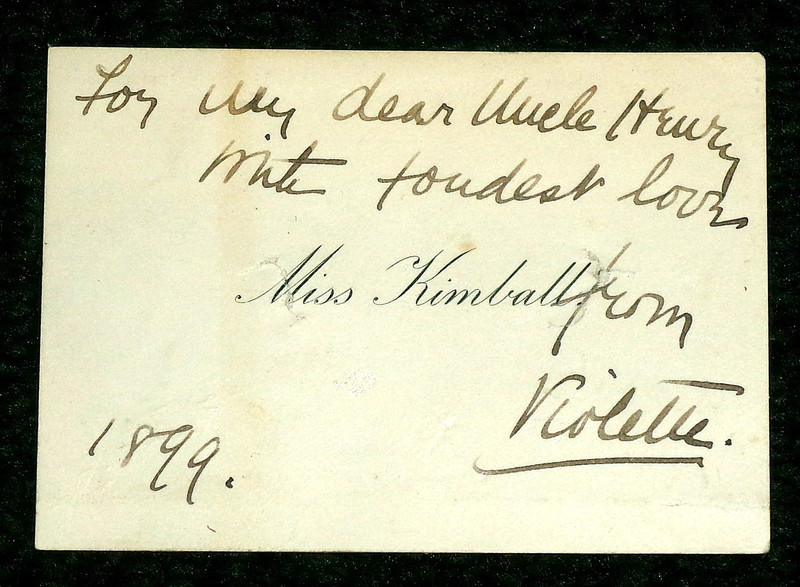 For my dear Uncle Henry
With fondest love
Miss Kimball.
from
Violette.
1899.